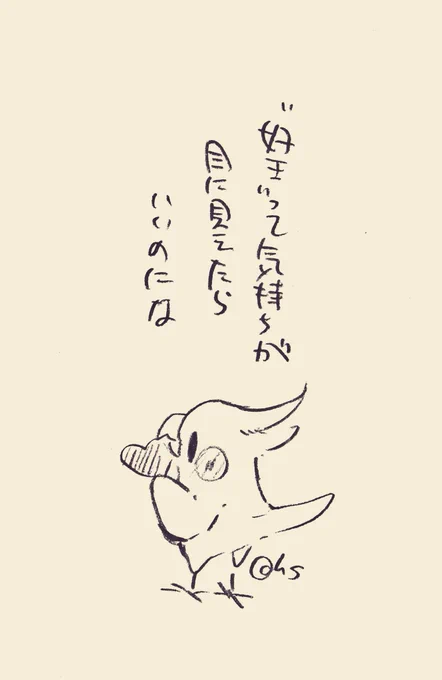 "好き"って気持ちが
目に見えたら
いいのにな
@hs